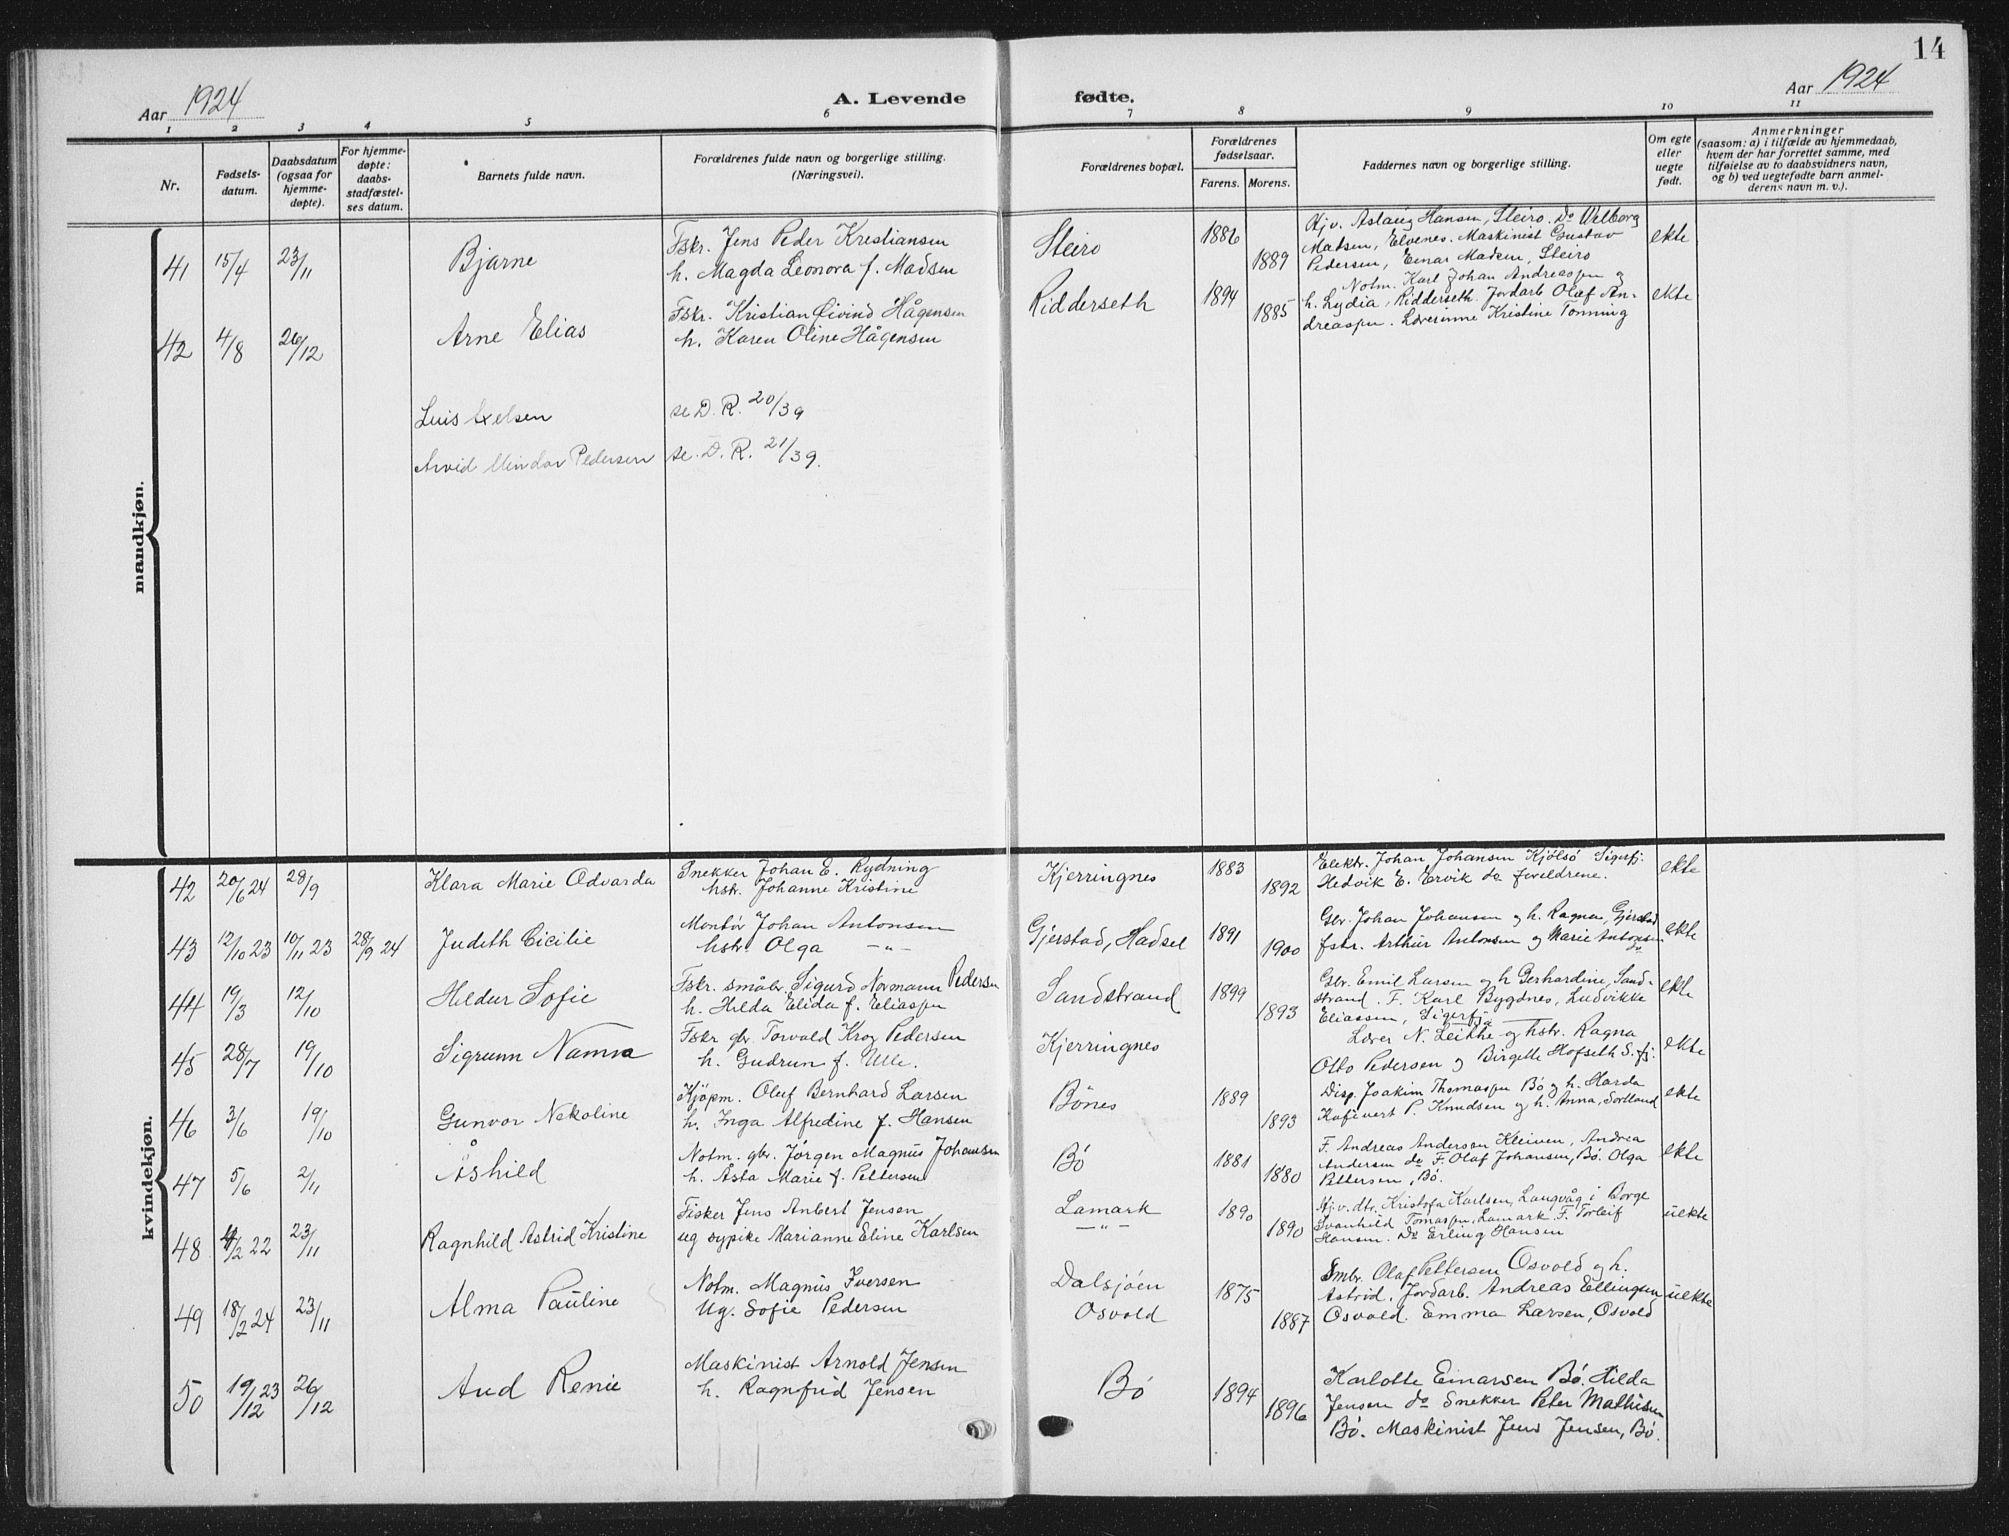 14
Aar 1924
A. Levende fødte.
Aar 1924
1 2 3 4 5 6 7 8 9 10 11
Nr.
Fødsels-
datum.
Daabsdatum
(ogsaa for
hjemme-
døpte).
For hjemme-
døpte:
daabs-
stadfæstel-
ses datum.
Barnets fulde navn.
Forældrenes fulde navn og borgerlige stilling.
(Næringsvei).
Forældrenes bopæl.
Forældrenes
fødselsaar.
Farens. Morens.
Faddernes navn og borgerlige stilling.
Om egte
eller
uegte
født.
Anmerkninger
(saasom: a) i tilfælde av hjemmedaab,
hvem der har forrettet samme, med
tilføielse av to daabsvidners navn,
og b) ved uegtefødte barn anmel-
derens navn m. v.).
mandkjøn.
41 15/4 23/11 Bjarne
Fskr. Jens Peder Kristiansen
h. Magda Leonora f. Madsen
Steiro 1886 1889
Hjv. Aslaug Hansen, Steiro. Do Valborg
Madsen, Elvenes. Maskinist Gustav
Pedersen, Einar Madsen, Steiro
ekte
42 4/8 26/12 Arne Elias
Fskr. Kristian Øivind Hågensen
h. Karen Oline Hågensen
Ridderseth 1894 1885
Notm. Karl Johan Andreassen og
h. Lydia, Ridderseth. Jordarb. Olaf An-
dreassen. Lærerinne Kristine Tonning
ekte
Luis Axelsen se D. R. 20/39
Arvid Mindor Pedersen se. D. R. 21/39.
kvindekjøn.
42 20/6 24 28/9 Klara Marie Odvarda
Snekker Johan E. Rydning
hstr. Johanne Kristine
Kjerringnes 1883 1892
Elektr. Johan Johansen Kjølsø Sigerfj.
Hedvik E. Ervik do foreldrene.
ekte
43 12/10 23 10/11 23 28/9 24 Judith Cicilie
Montør Johan Antonsen
hstr Olga —"—
Gjerstad, Hadsel 1891 1900
Gbr. Johan Johansen og h. Ragna, Gjerstad
fskr. Arthur Antonsen og Marie Antonsen do
ekte
44 19/3 12/10 Hildur Sofie
Fskr. småbr. Sigurd Normann Pedersen
h. Hilda Elida f. Eliassen
Sandstrand 1899 1893
Gbr. Emil Larsen og h Gerhardine, Sand-
strand. F. Karl Bygdnes, Ludvikke
Eliassen, Sigerfjo
ekte
45 28/7 19/10 Sigrunn Namna
Fskr gbr. Torvald Krog Pedersen
h. Gudrun f. Ulle.
Kjerringnes
Lærer N. Leikhe og hstr. Ragna
Otto Pedersen og Birgitte Hofseth S.fj.
ekte
46 3/6 19/10 Gunvor Nekoline
Kjøpm. Oluf Bernhard Larsen
h. Inga Alfredine f. Hansen
Bönes 1889 1893
Disp. Joakim Thomassen Bö og h. Harda
Kafévert P. Knudsen og h. Anna, Sortland
ekte
47 5/6 2/11 Åshild
Notm. gbr. Jörgen Magnus Johansen
h. Åsta Marie f. Pettersen
Bö 1881 1880
F. Andreas Andersen Kleiven, Andrea
Andersen do F. Olaf Johansen, Bö. Olga
Pettersen, Bö.
ekte
48 4/2 22 23/11 Ragnhild Astrid Kristine
Fisker Jens Anbert Jensen
ug sypike Marianne Eline Karlsen
Lamark
—"—
1890 1890
Hjv. dtr. Kristofa Karlsen, Langvåg i Borge
Svanhild Tomassen, Lamark. F. Torleif
Hansen. Do Erling Hansen
uekte
49 18/2 24 23/11 Alma Pauline
Notm. Magnus Iversen
Ug. Sofie Pedersen
Dalsjöen
Osvold
1875 1887
Smbr. Olaf Pettersen Osvold og h.
Astrid, Jordarb. Andreas Ellingsen
Osvold. Emma Larsen, Osvold
uekte
50 19/12 23 26/12 Aud Renie
Maskinist Arnold Jensen
h. Ragnfrid Jensen
Bö 1894 1896
Karlotte Einarsen Bö. Hilda
Jensen do Snekker Peter Mathisen
Bö. Maskinist Jens Jensen, Bö.